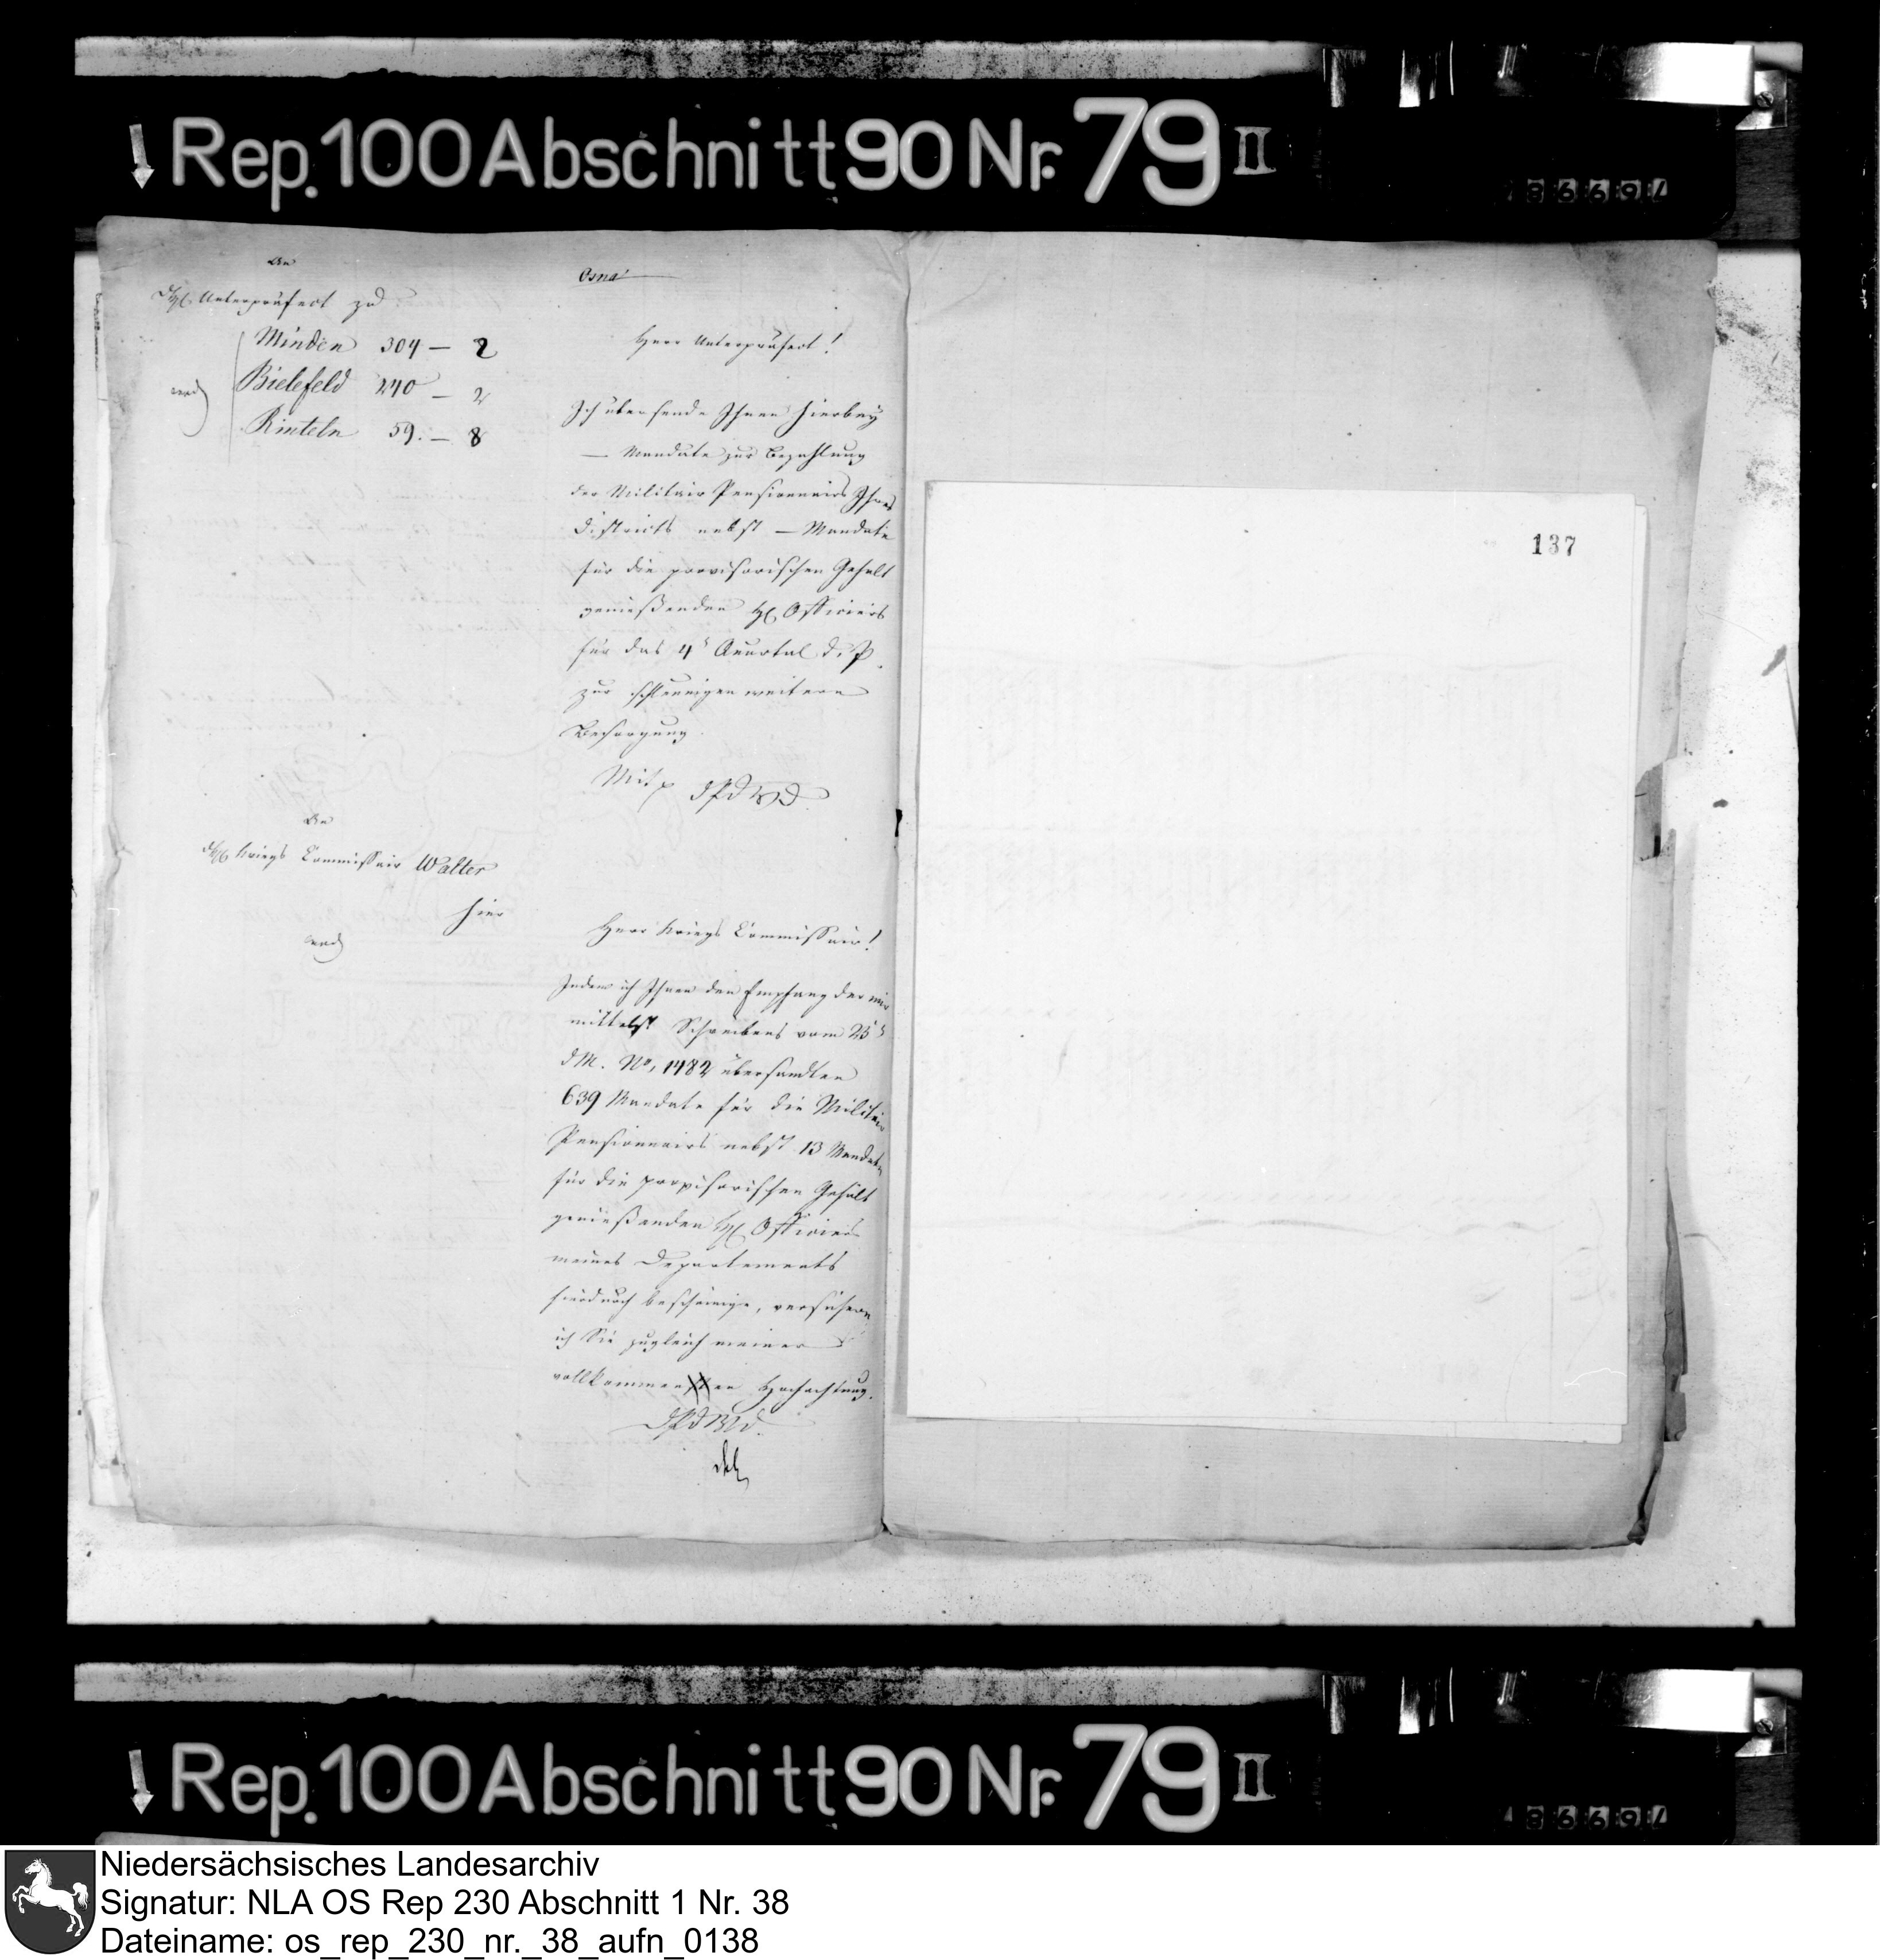 Rep. 100 Abschnitt 90 Nr. 79 II
An
d H Unterpräfect zu
Minden 304 — 2
Bielefeld 240 — 2
Rinteln 59. — 8
Osna
Herr Unterpräfect!
Ich übersende Ihnen hierbey
— Mandate zur Bezahlung
der Militair Pensionnairs Ihres
Districts nebst — Mandate
für die provisorischen Gehalt
genießenden H Officiers
für das 4t Quartal d. J.
zur schleunigen weitern
Besorgung.
Mit p DPdWD
An
d H Kriegs Commissair Walter
hier
Herr Kriegs Commissair!
Indem ich Ihnen den Empfang der mir
mittelst Schreibens vom 25t
d M. No, 1482 übersandten
639 Mandate für die Militair
Pensionnairs nebst 13 Mandate
für die provisorischen Gehalt
genießenden H Officiers
meines Departements
hierdurch bescheinige, versichere
ich Sie zugleich meiner
vollkommenen Hochachtung.
DPdWD.
137
Rep. 100 Abschnitt 90 Nr. 79 II
Niedersächsisches Landesarchiv
Signatur: NLA OS Rep 230 Abschnitt 1 Nr. 38
Dateiname: os_rep_230_nr._38_aufn_0138